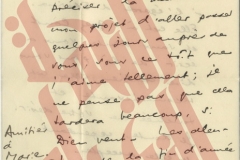 Préciser la
mon projet d'aller passer
quelques jours auprès de
vous, sous ce toit que
j'aime tellement ; je
ne pense pas que cela
tardera beaucoup, si
Dieu veut. Les
la fin d'année
Amitiés
à
Marie